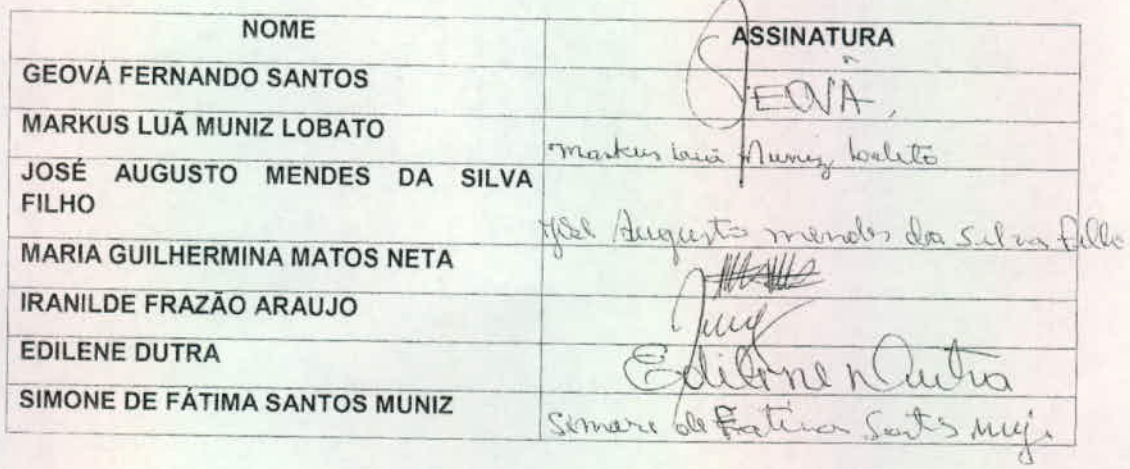 NOME ASSINATURA
GEOVÁ FERNANDO SANTOS GEOVÁ,
MARKUS LUÃ MUNIZ LOBATO Markus Luã Muniz Lobato
JOSÉ AUGUSTO MENDES DA SILVA
FILHO José Augusto mendes da Silva filho
MARIA GUILHERMINA MATOS NETA
IRANILDE FRAZÃO ARAUJO
EDILENE DUTRA Edilene Dutra
SIMONE DE FÁTIMA SANTOS MUNIZ Simone de Fatima Santos